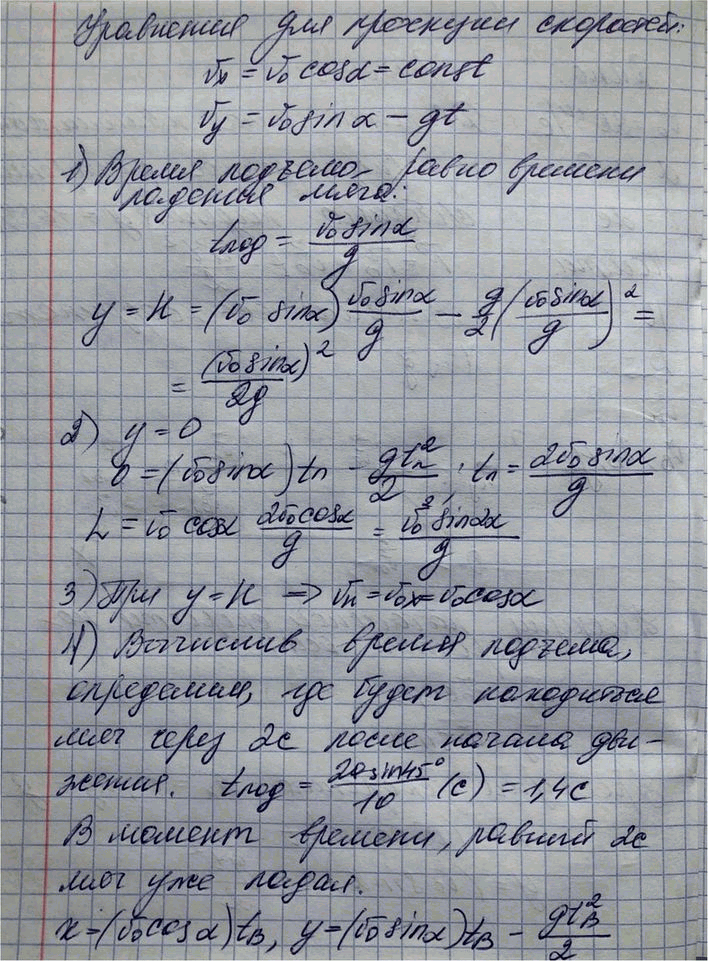 Уравнения для проекции скоростей:
υx = υ0 cosα = const
υy = υ0 sinα − gt
1) Время подъема равно времени
падения мяча:
tпод = υ0 sinα / g
y = H = (υ0 sinα) υ0 sinα / g − g/2 (υ0 sinα / g)² =
= (υ0 sinα)² / 2g
2) y = 0
0 = (υ0 sinα) tп − gtп² / 2 ; tп = 2υ0 sinα / g
L = υ0 cosα 2υ0 cosα / g = υ0² sin2α / g
3) При y = H => υн = υ0x = υ0 cosα
4) Вычислив время подъема,
определим, где будет находиться
мяч через 2с после начала дви-
жения. tпод = 20 sin45° / 10 (с) = 1,4с
В момент времени, равный 2с
мяч уже падал.
x = (υ0 cosα) tВ, y = (υ0 sinα) tВ − gtВ² / 2